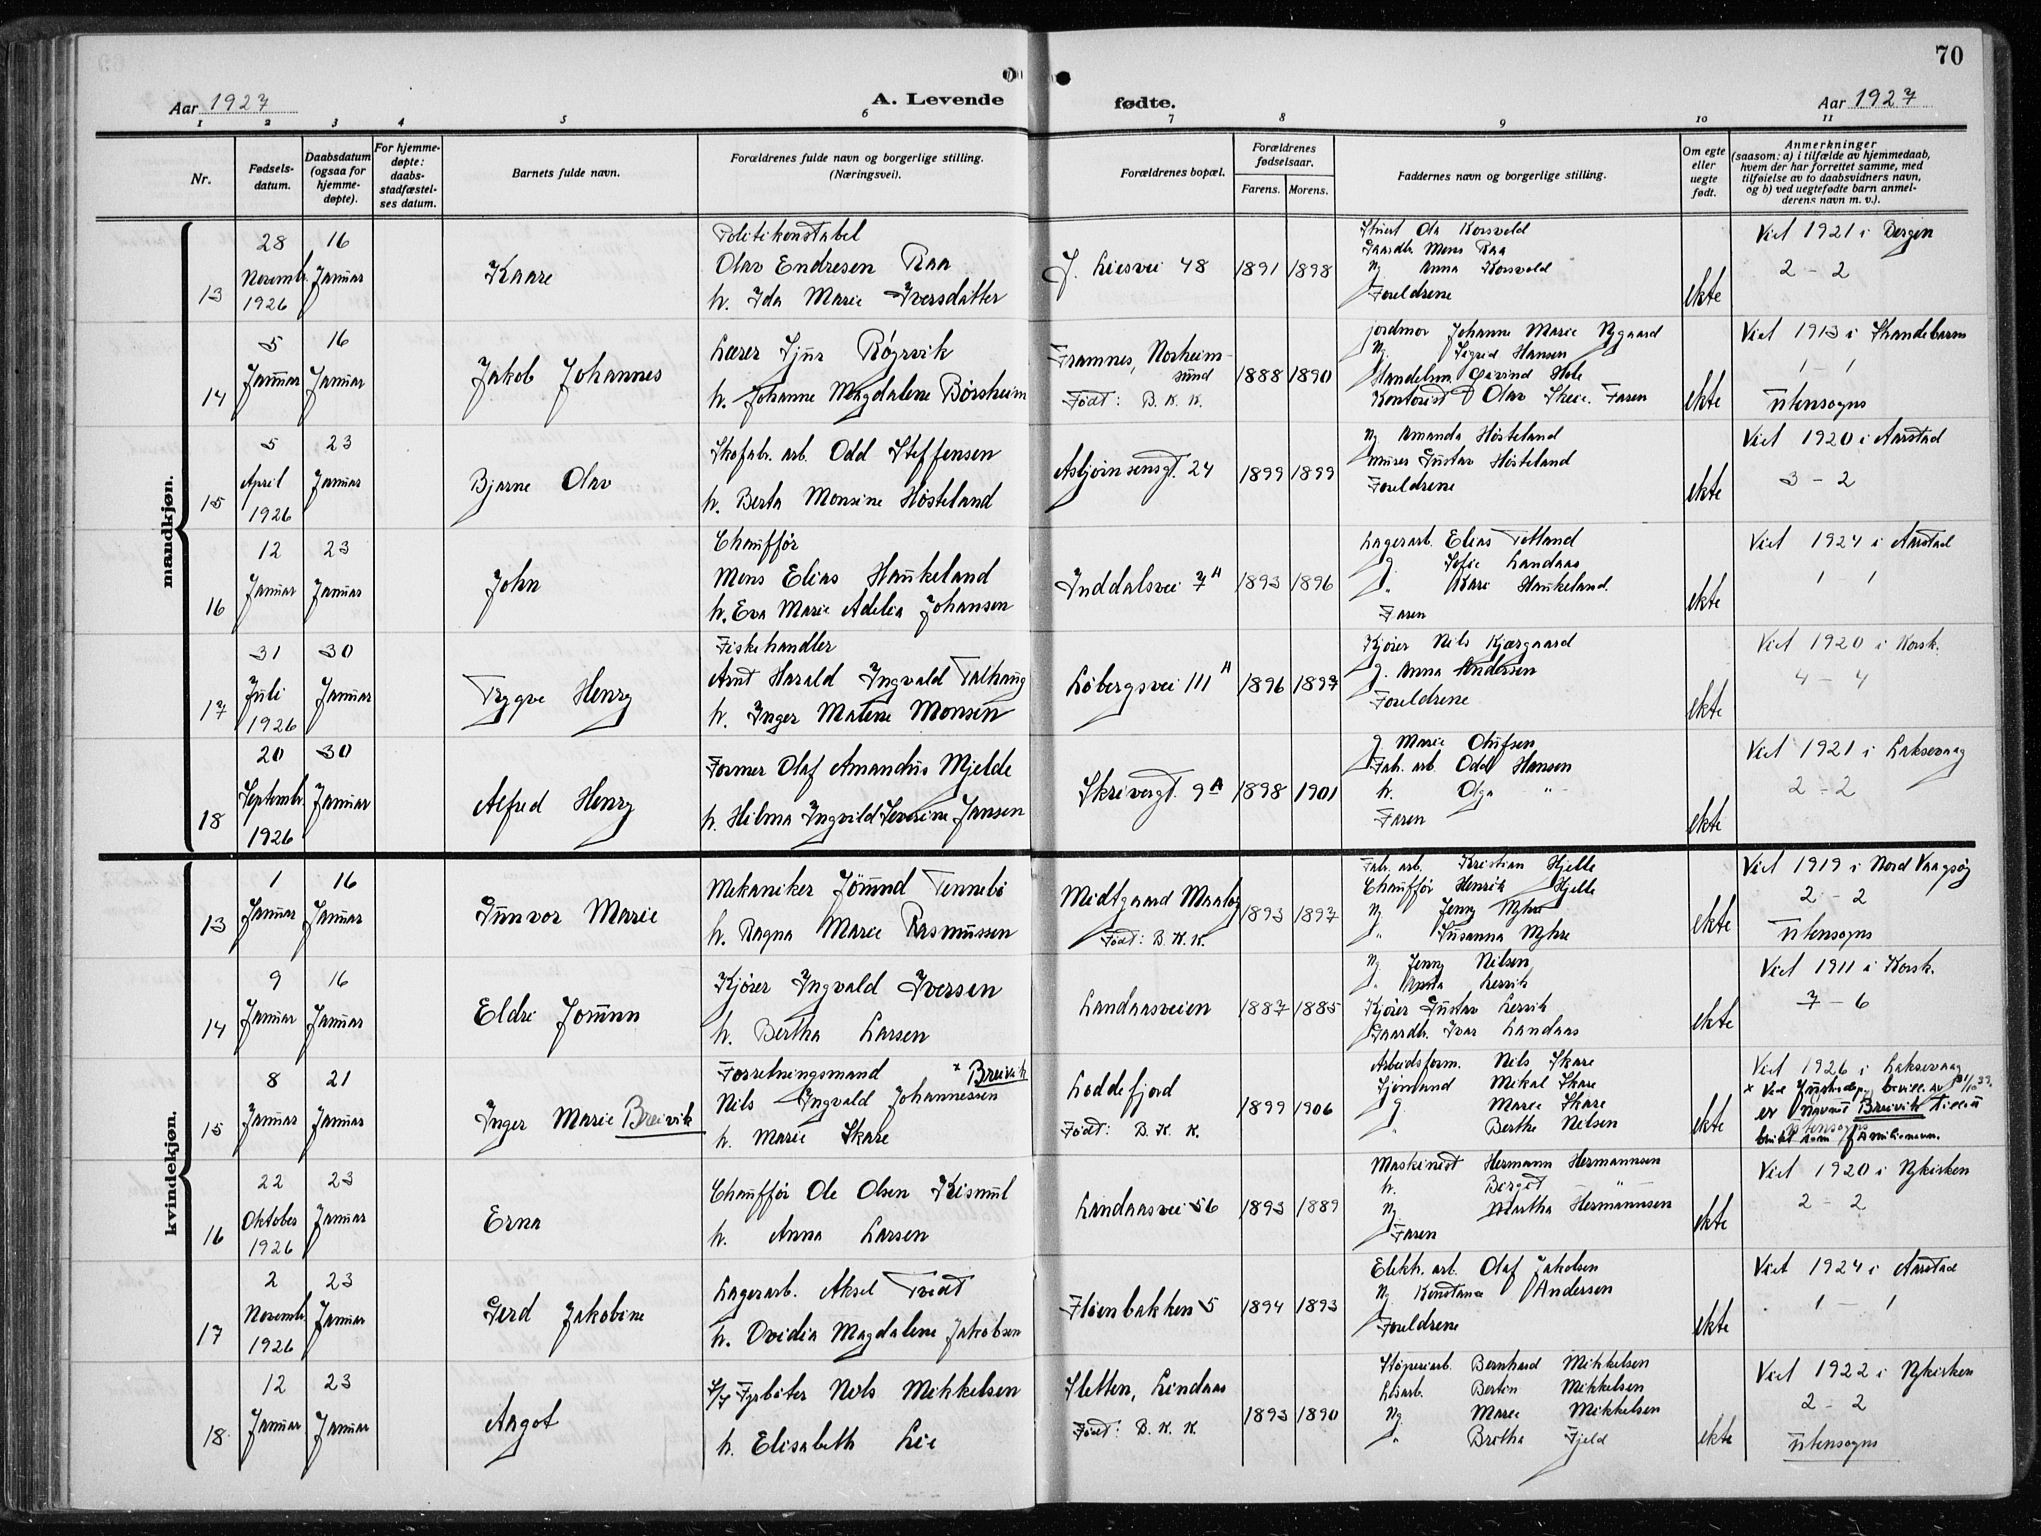 70
Aar 1927
A. Levende fødte.
Aar 1927
1 2 3 4 5 6 7 8 9 10 11
Nr.
Fødsels-
datum.
Daabsdatum
(ogsaa for
hjemme-
døpte).
For hjemme-
døpte:
daabs-
stadfæstel-
ses datum.
Barnets fulde navn.
Forældrenes fulde navn og borgerlige stilling.
(Næringsvei).
Forældrenes bopæl.
Forældrenes
fødselsaar.
Farens. Morens.
Faddernes navn og borgerlige stilling.
Om egte
eller
uegte
født.
Anmerkninger
(saasom: a) i tilfælde av hjemmedaab,
hvem der har forrettet samme, med
tilføielse av to daabsvidners navn,
og b) ved uegtefødte barn anmel-
derens navn m. v.).
mandkjøn.
13
28
Novembr.
1926
16
Januar
Kaare
Politikonstabel
Olav Endresen Raa
h. Ida Marie Iversdatter
J. Liesvei 48
1891 1898
Ola Korsvold
Gaardbr. Mons Raa
Ug. Anna Korsvold
Foreldrene
ekte
Viet 1921 i Bergen
2 - 2
14
5
Januar
16
Januar
Jakob Johannes
Lærer Sjur Røyrvik
h. Johanne Magdalene Børsheim
Framnes, Norheim-
sund
Født: B. K. K.
1888 1890
jordmor Johanne Marie Nygaard
Ug. Sigrid Hansen
Handelsm. Øivind Hole
Kontorist Olav Skeie. Faren
ekte
Viet 1913 i Strandebarm
1 - 1
Utensogns
15
5
April
1926
23
Januar
Bjarne Olav
Skofabr. arb. Odd Steffensen
h. Berta Monsine Høsteland
Asbjørnsensgt. 24
1899 1899
Ug Amanda Høsteland
Murer Gustav Høsteland
Foreldrene
ekte
Viet 1920 i Aarstad
3 - 2
16
12
Januar
23
Januar
John
Chauffør
Mons Elias Haukeland
h. Eva Marie Adelia Johansen
Inddalsvei 7A
1893 1896
Lagerarb. Elias Totland
g. Sofie Landaas
" Kari Haukeland.
Faren
ekte
Viet 1924 i Aarstad
1 - 1
17
31
Juli
1926
30
Januar
Trygve Henry
Fiskehandler
Arnt Harald Ingvald Talhaug
h. Inger Malene Monsen
Løbergsvei 111A
1896 1897
Kjører Nils Kjærgaard
g. Anna Andersen
Foreldrene
ekte
Viet 1920 i Korsk.
4 - 4
18
20
Septembr.
1926
30
Januar
Alfred Henry
Former Olaf Amandus Mjelde
h. Hilma Ingvild Severine Jansen
Skrivergt. 9A
1898 1901
g. Marie Olufsen
Fab. arb. Odd Hansen
h. Olga "
Faren
ekte
Viet 1921 i Laksevaag
2 - 2
kvindekjøn.
13
1
Januar
16
Januar
Gunvor Marie
Mekaniker Jömund Tennebö
h. Ragna Marie Rasmussen
Midtgaard Maaløy
Født: B. K. K.
1893 1897
Fab. arb. Kristian Hjelle
Chauffør Henrik Hjelle
Ug Jenny Myhre
" Susanna Myhre
ekte
Viet 1919 i Nord Vaagsøy
2 - 2
Utensogns
14
9
Januar
16
Januar
Eldri Jorunn
Kjører Ingvald Iversen
h. Bertha Larsen
Landaasveien
1887 1885
Ug Jenny Nilsen
" Lervik
Kjører Gustav Lervik
Gaardbr. Ivar Landaas
ekte
Viet 1911 i Korsk.
7 - 6
15
8
Januar
21
Januar
Inger Marie Breivik
Forretningsmand x Breivik
Nils Ingvald Johannessen
h. Marie Skare
Loddefjord
Født: B. K. K.
1899 1906
Arbeidsform. Nils Skare
Sjømand Mikal Skare
g. Marie Skare
" Berthe Nilsen
ekte
Viet 1926 i Laksevaag
x Ved Justisdep. bevill. av 31/10 39.
er navnet Breivik tillatt
utensogns
brukt som familienavn.
16
22
Oktober
1926
23
Januar
Erna
Chauffør Ole Olsen Kismul
h. Anna Larsen
Landaasvei 56
1893 1889
Maskinist Hermann Hermannsen
h. Berget - " -
Ug Martha Hermannsen
Faren
ekte
Viet 1920 i Nykirken
2 - 2
17
2
Novembr.
1926
23
Januar
Gerd Jakobine
Lagerarb. Aksel Tvedt
h. Ovidia Magdalene Jakobsen
Fløenbakken 5
1894 1893
Elekh. arb. Olaf Jakobsen
Ug Konstance Andersen
Foreldrene
ekte
Viet 1924 i Aarstad
1 - 1
18
12
Januar
23
Januar
Aagot
Fyrbøter Nils Mikkelsen
h. Elisabeth Lie
Sletten, Lindaas
Født: B. K. K.
1893 1890
Støperiarb. Bernhard Mikkelsen
Bertin Mikkelsen
Ug. Marie Mikkelsen
" Brotha Fjeld
ekte
Viet 1922 i Nykirken
2 - 2
Utensogns